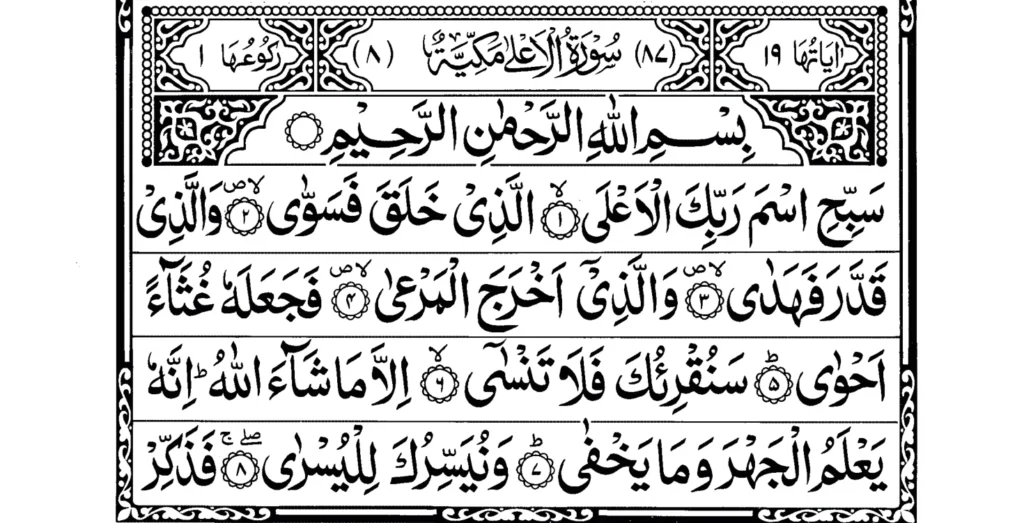 اٰیَاتُهَا ١٩ (٨٧) سُوْرَةُ الْاَعْلٰی مَكِّیَّةٌ (٨) رُكُوْعُهَا ١
بِسْمِ اللّٰهِ الرَّحْمٰنِ الرَّحِیْمِ
سَبِّحِ اسْمَ رَبِّكَ الْاَعْلَی ۙ﴿١﴾ الَّذِیْ خَلَقَ فَسَوّٰی ۪ۙ﴿٢﴾ وَالَّذِیْ
قَدَّرَ فَهَدٰی ۪ۙ﴿٣﴾ وَالَّذِیْۤ اَخْرَجَ الْمَرْعٰی ۪ۙ﴿٤﴾ فَجَعَلَهٗ غُثَآءً
اَحْوٰی ؕ﴿٥﴾ سَنُقْرِئُكَ فَلَا تَنْسٰۤی ۙ﴿٦﴾ اِلَّا مَا شَآءَ اللّٰهُ ؕ اِنَّهٗ
یَعْلَمُ الْجَهْرَ وَمَا یَخْفٰی ؕ﴿٧﴾ وَنُیَسِّرُكَ لِلْیُسْرٰی ۚۖ﴿٨﴾ فَذَكِّرْ